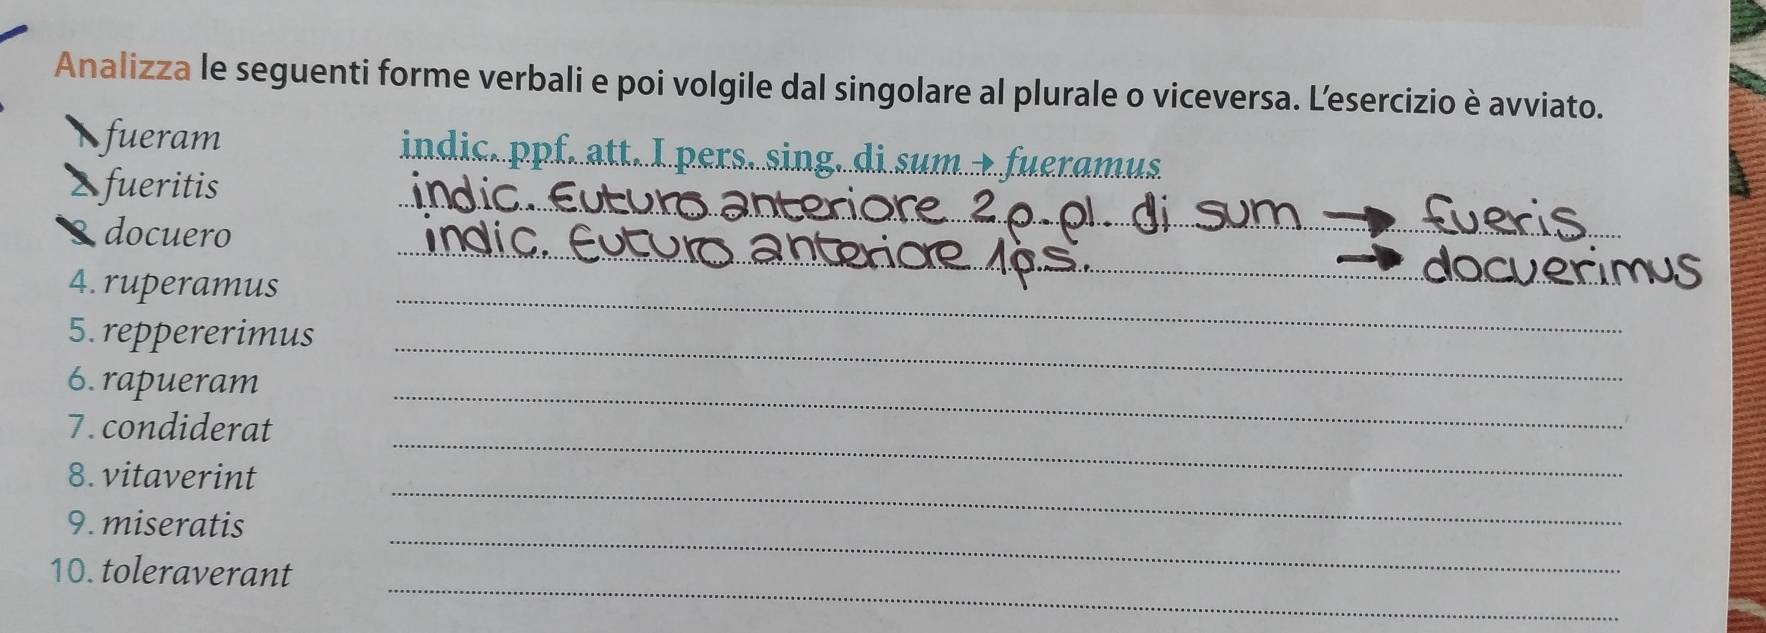 Analizza le seguenti forme verbali e poi volgile dal singolare al plurale o viceversa. L'esercizio è avviato.
1. fueram indic. ppf. att. I pers. sing. di sum → fueramus
2. fueritis indic. futuro anteriore 2 p. pl. di sum → fueris
3. docuero indic. futuro anteriore 1 p.s. → docuerimus
4. ruperamus
5. reppererimus
6. rapueram
7. condiderat
8. vitaverint
9. miseratis
10. toleraverant